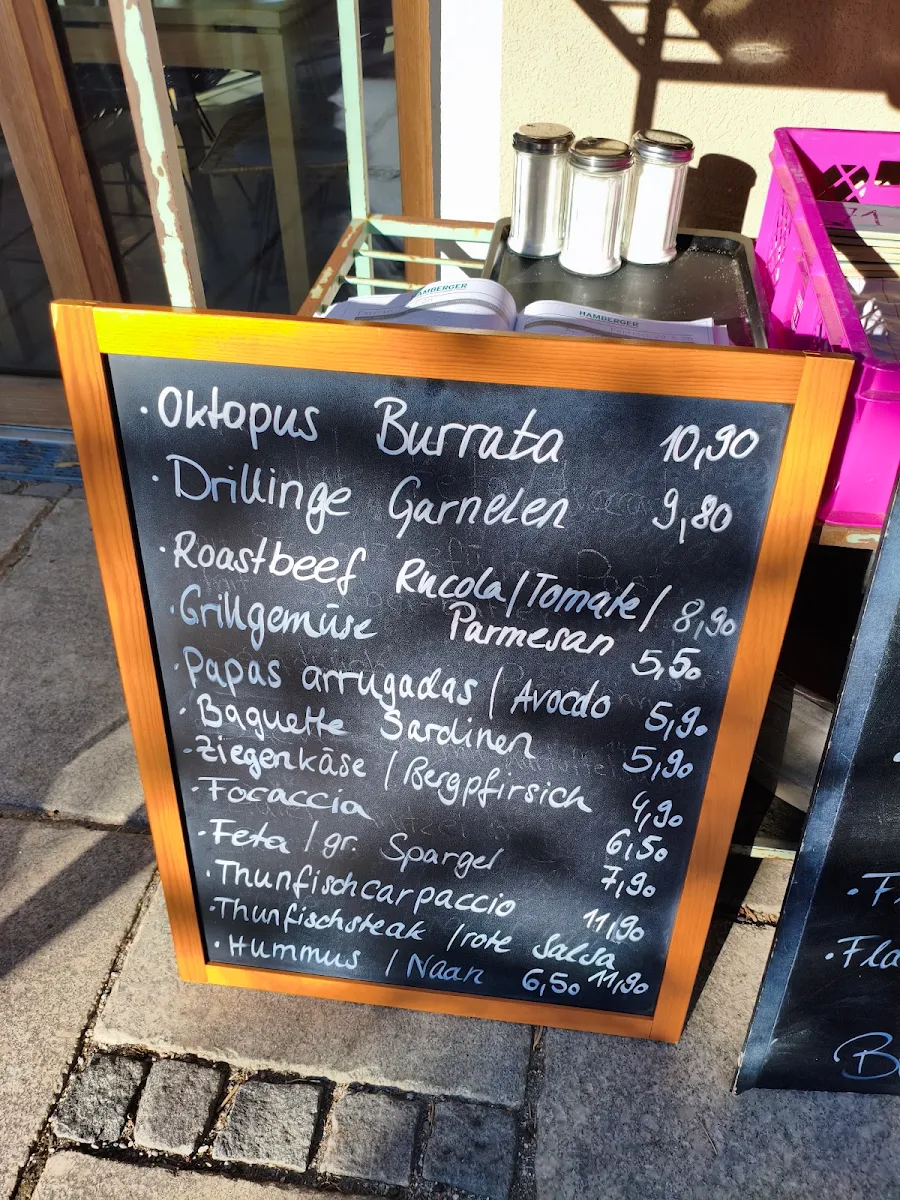 HAMBERGER
HAMBERGER
· Oktopus Burrata 10,90
· Drillinge Garnelen 9,80
· Roastbeef Rucola/Tomate/ 8,90
Parmesan
· Grillgemüse 5,50
· Papas arrugadas / Avocdo 5,90
· Baguette Sardinen 5,90
· Ziegenkäse / Bergpfirsich 4,90
· Focaccia 6,50
· Feta / gr. Spargel 7,90
· Thunfischcarpaccio 11,90
· Thunfischsteak / rote Salsa 11,90
· Hummus / Naan 6,50